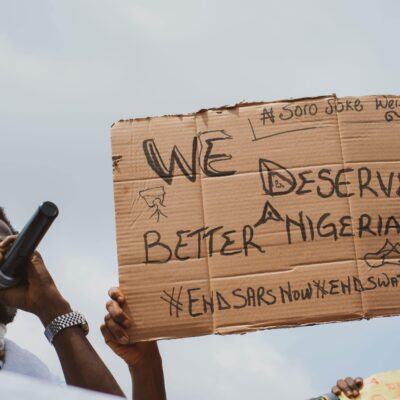 #Soro Soke Wer
WE DESERVE
A
BETTER NIGERIA
#ENDSARSNOW #ENDSWAT